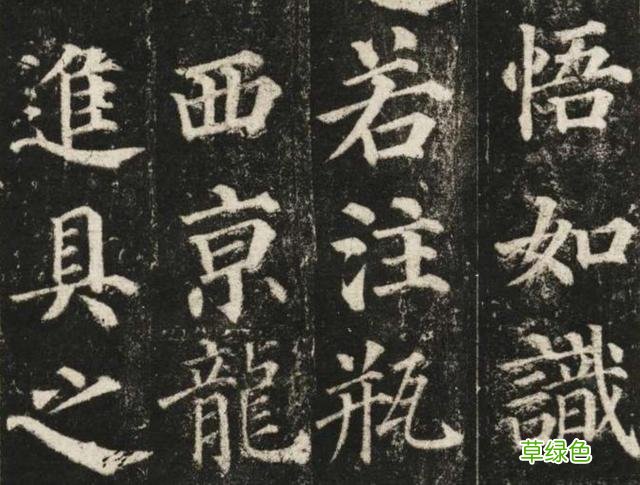 悟如識
若注瓶
西京龍
進具之
草绿色